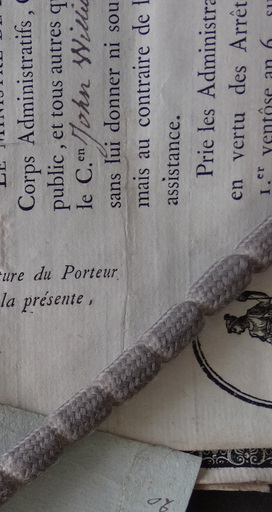 LE MINISTRE DE
Corps Administratifs, C
public, et tous autres q
le C.en John Willi
sans lui donner ni sou
mais au contraire de l
assistance.
Prie les Administra
en vertu des Arrêt
1.er ventôse an 6
ture du Porteur
la présente,